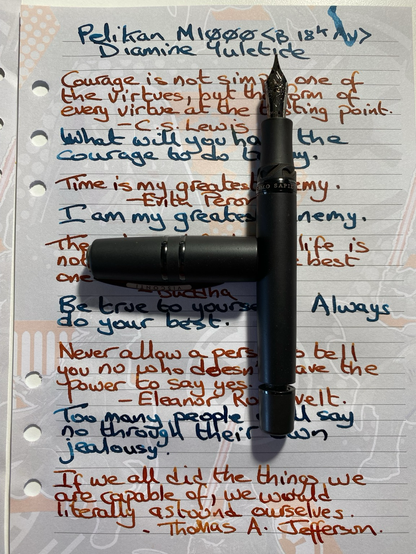 Pelikan M1ØØØ <B 18k Au>
Diamine Yuletide
Courage is not simp one of
the virtues, but the form of
every virtue at the ting point.
- C.S. Lewis
What will you ha the
courage to do t y.
Time is my greates emy.
- Evita Peron
I am my greates nemy.
The life is
not best
one
Buddha
Be true to yourse Always
do your best.
Never allow a pers to tell
you no who doesn' ave the
power to say yes.
- Eleanor Ro velt.
Too many people ll say
no through their wn
jealousy.
If we all did the things we
are capable of, we would
literally astound ourselves.
- Thomas A. Jefferson.
RAPI